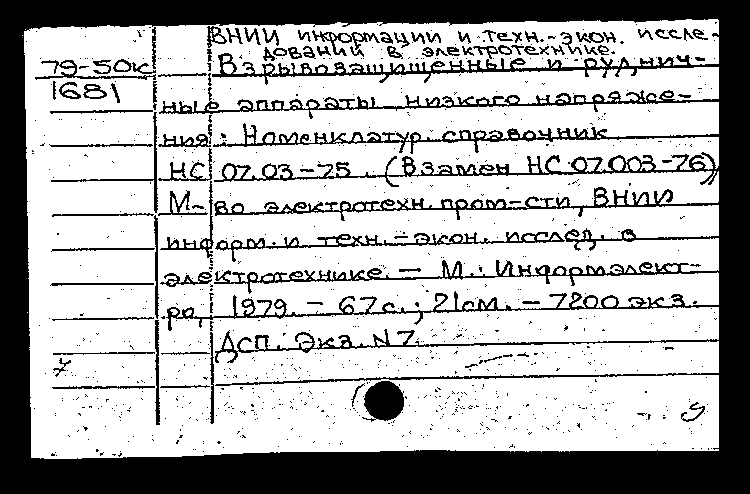 ВНИИ информации и техн.-экон. иссле-
дований в электротехнике.
79-50к Взрывозащищенные и руднич-
1681
ные аппараты низкого напряже-
ния: Номенклатур. справочник
НС 07.03-75. (Взамен НС 07.003-76)
М-во электротехн. пром-сти, ВНИИ
информ. и техн.-экон. исслед. в
электротехнике. — М.: Информэлект-
ро, 1979. - 67 с.; 21 см. - 7200 экз.
ДСП. Экз. N 7.
7